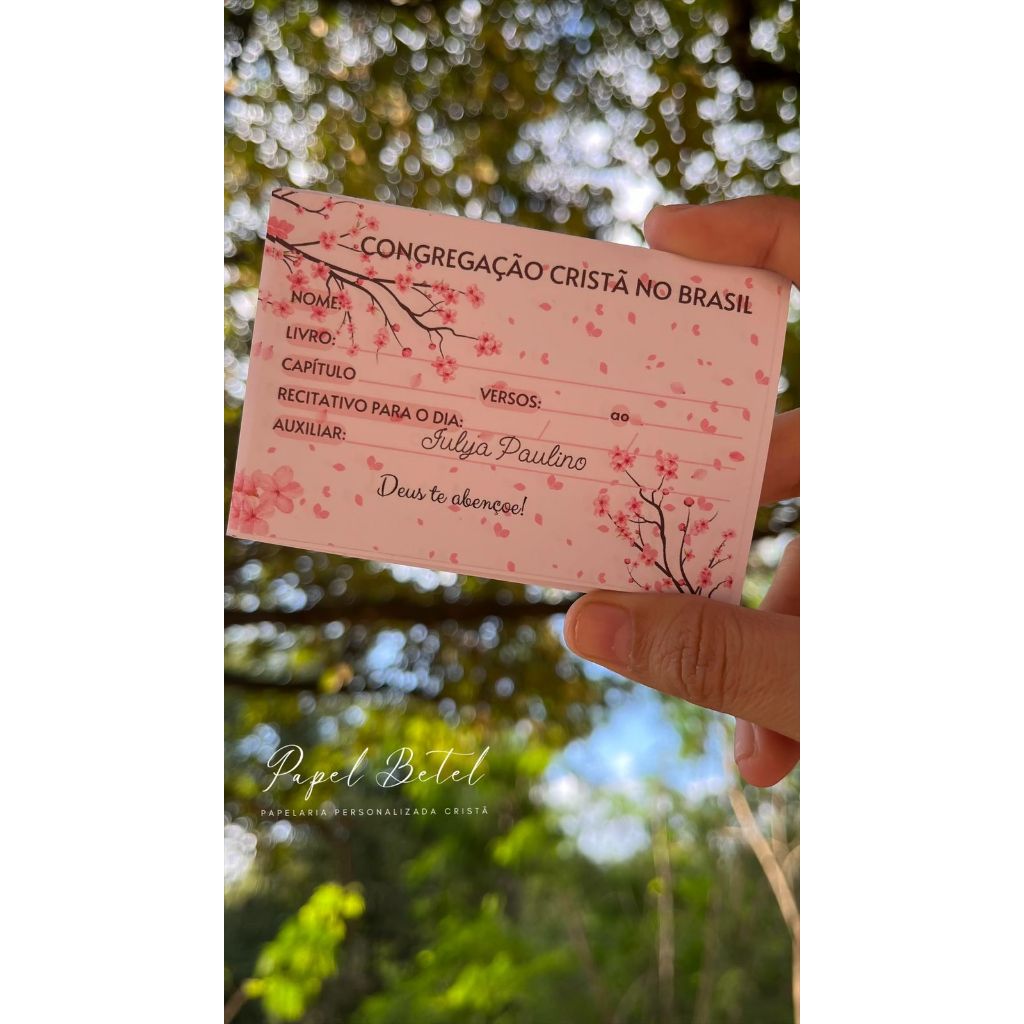 CONGREGAÇÃO CRISTÃ NO BRASIL
NOME:
LIVRO:
CAPÍTULO VERSOS: ao
RECITATIVO PARA O DIA: / /
AUXILIAR: Julya Paulino
Deus te abençoe!
Papel Betel
PAPELARIA PERSONALIZADA CRISTÃ